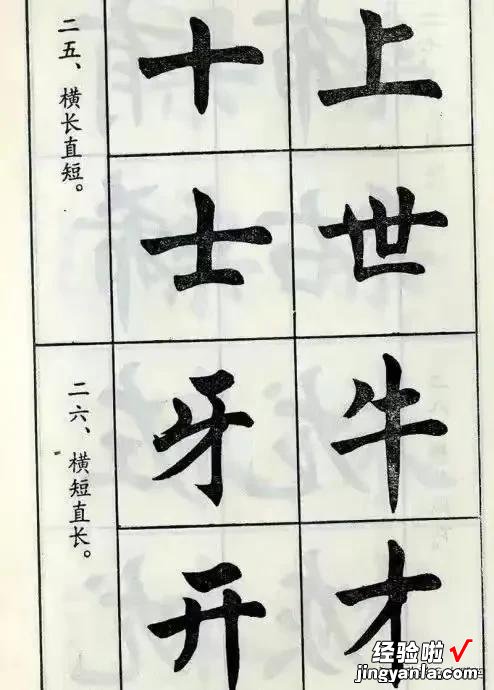 二五、横长直短。
上十
世士
二六、横短直长。
牛牙
才开
经验啦√
jingyanla.com